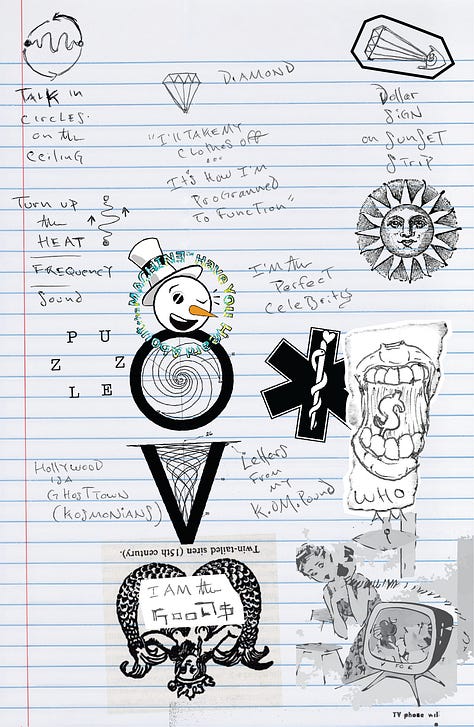 DIAMOND
Talk in
circles
on the
Ceiling
"I'll TAKE MY
Clothes off
...
It's How I'm
Programmed
To Function"
Dollar
SIGN
on SunSET
STRIP
Turn up
the
HEAT
FREQUENCY
Sound
MACHINE" HAVE YOU
I'm the
Perfect
CeleBrity
P U
Z Z
L E
HOllywood
is A
GHOST TOWN
(KOSMONIANS)
Letters
From
my
K.O.M. Pound
S
WHO
AM
I
Twin-tailed siren (15th century).
I AM the
GOOD$
TV phone wil